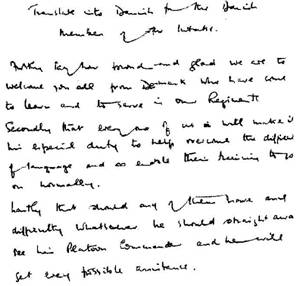 Translate into Danish for the Danish
member of the Intake.
Firstly say how proud and glad we are to
welcome you all from Denmark who have come
to learn and to serve in our Regiment
Secondly that every one of us will make it
his especial duty to help overcome the difficul
of language and so enable their training to go
on normally.
Lastly that should any of them have any
difficulty whatsoever he should straight awa
see his Platoon Commander and he will
get every possible assistance.